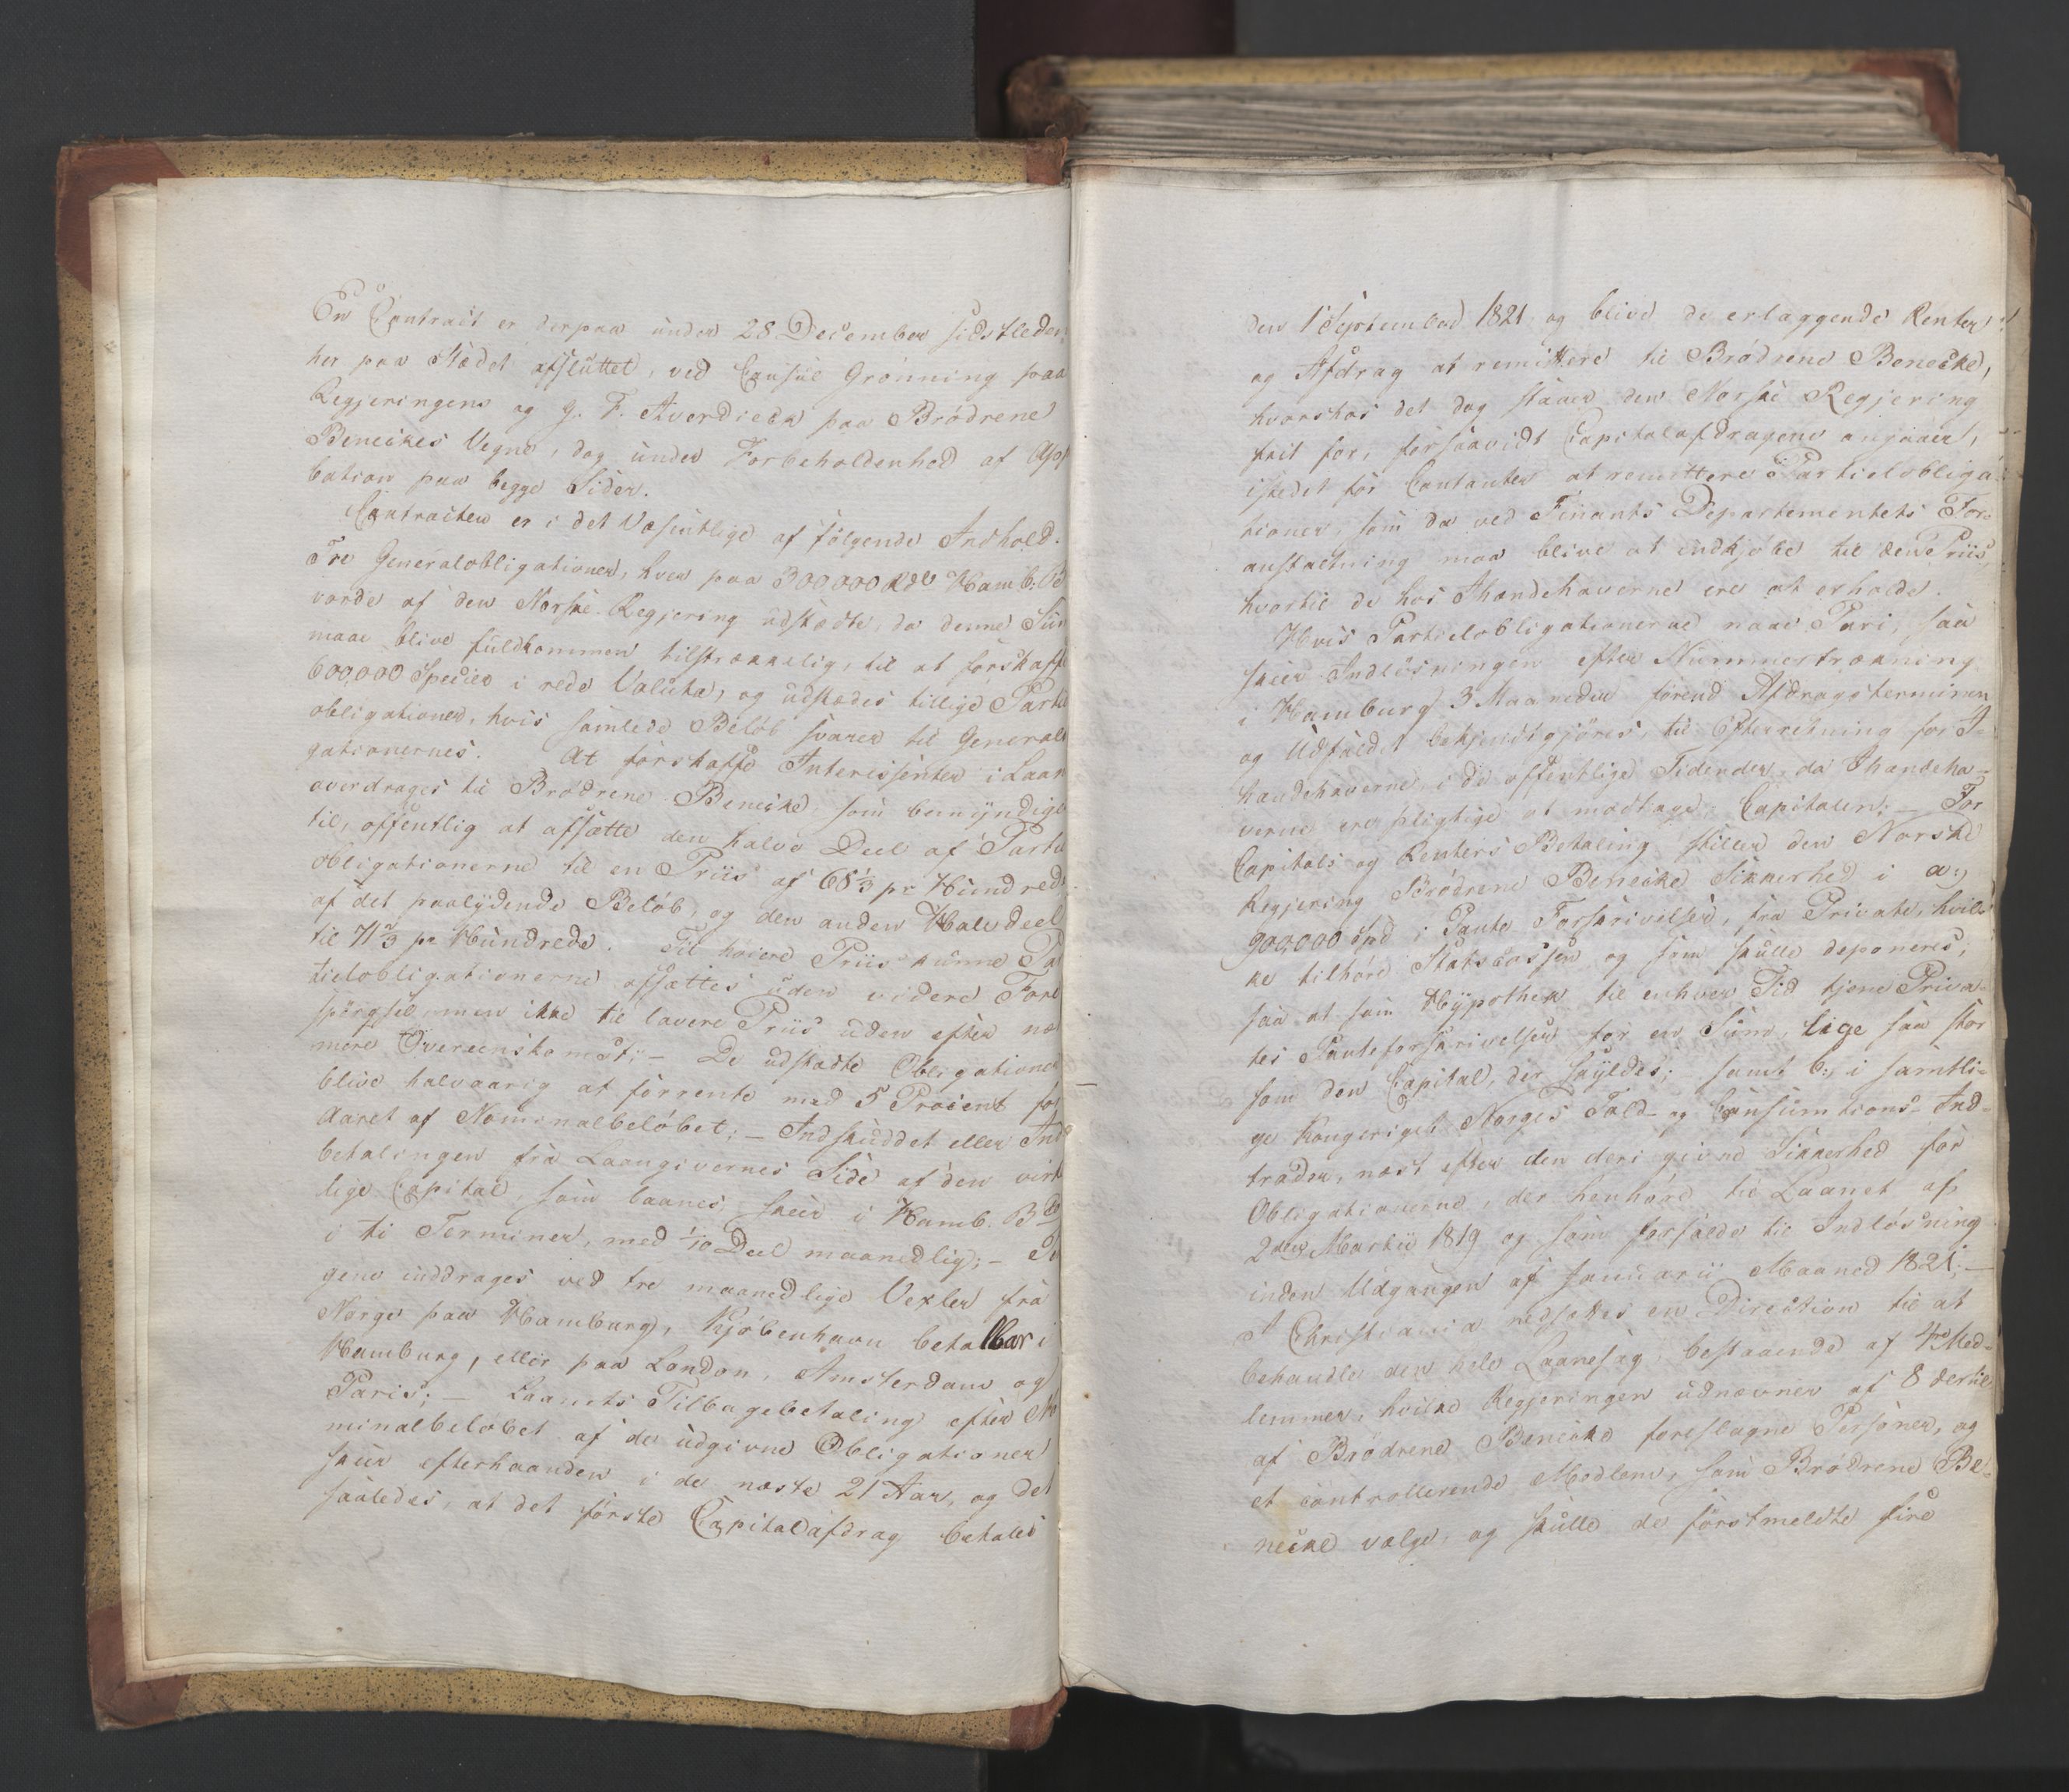 En Contract er derpaa under 28 December sidstleden
her paa Stædet afsluttet, ved Consul Grønning paa
Regjeringens og G. F. Averdieck paa Brødrene
Beneckes Vegne, dog under Forbeholdenhed af Appro
bation paa begge Sider.
Contracten er i det Væsentlige af følgende Indhold.
Tre Generalobligationer, hver paa 300,000 Rdl Hamb: Bco
vorde af den Norske Regjering udstædte, da denne Sum
maae blive fuldkommen tilstrækkelig, til at forskaffe
600,000 Species i rede Valuta, og udstædes tillige Partial
obligationer, hvis samlede Beløb svarer til Generalobli
gationernes. At forskaffe Interessenter i Laanet
overdrages til Brødrene Benecke, som bemyndiges
til, offentlig at afsætte den halve Deel af Partial
obligationerne til en Priis af 68⅓ pr Hundrede
af det paalydende Beløb, og den anden Halvdeel
til 71⅔ pr Hundrede. Til høiere Priis kunne Par
tielobligationerne afsættes uden videre Fore
spørgsel, men ikke til lavere Priis uden efter nær
mere Overeenskomst; – De udstædte Obligationer
blive halvaarig at forrente med 5 Procent for
Aaret af Nominalbeløbet; – Indskuddet eller Ind
betalingen fra Laangivernes Side af den virke
lige Capital, som laanes, skeer i Hamb. Bco
i ti Terminer, med 1/10 Deel maanedlig; – Pen
gene inddrages ved tre maanedlige Vexler fra
Norge paa Hamburg, Kjøbenhavn betalbar i
Hamburg, eller paa London, Amsterdam og
Paris; – Laanets Tilbagebetaling efter No
minalbeløbet af de udgivne Obligationer
skeer efterhaanden i de næste 21 Aar, og det
saaledes, at det første Capitalafdrag betales
den 1 September 1821, og blive de erlæggende Renter
og Afdrag at remittere til Brødrene Benecke,
hvorhos det dog staaer den Norske Regjering
frit for, forsaavidt Capitalafdragene angaaer,
istedet for Contanter at remittere Partielobliga-
tioner, som da ved Finants Departementets For-
anstaltning maa blive at indkjøbe til den Priis,
hvortil de hos Ihændehaverne ere at erholde.
Hvis Partielobligationerne naae Pari, saa
skeer Indløsningen efter Nummertrækning
i Hamburg 3 Maaneder førend Afdragsterminen
og Udfaldet bekjendtgjøres, til Efterretning for I-
hændehaverne, i de offentlige Tidender, da Ihændeha-
verne ere pligtige at modtage Capitalen; – For
Capitals og Renters Betaling stiller den Norske
Regjering Brødrene Benecke Sikkerhed i a:,
900,000 Spd i Pante Forskrivelser, fra Private, hvil-
ke tilhøre Statscassen og som skulle deponeres,
saa at som Hypothek til enhver Tid tjene Priva-
tes Panteforskrivelser for en Sum, lige saa stor
som den Capital, der skyldes; – samt b:, i samtli-
ge Kongeriget Norges Told- og Consumtions-Ind-
trader, næst efter den deri givne Sikkerhed for
Obligationerne, der henhøre til Laanet af
2den Martii 1819 og som forfalde til Indløsning
inden Udgangen af Januarii Maaned 1821; –
I Christiania nedsættes en Direction til at
behandle den hele Laanesag, bestaaende af 4re Med-
lemmer, hvilke Regjeringen udnævner af 8 dertil
af Brødrene Benecke foreslagne Personer, og
et controllerende Medlem, som Brødrene Be-
necke vælge, og skulle de førstmeldte fire